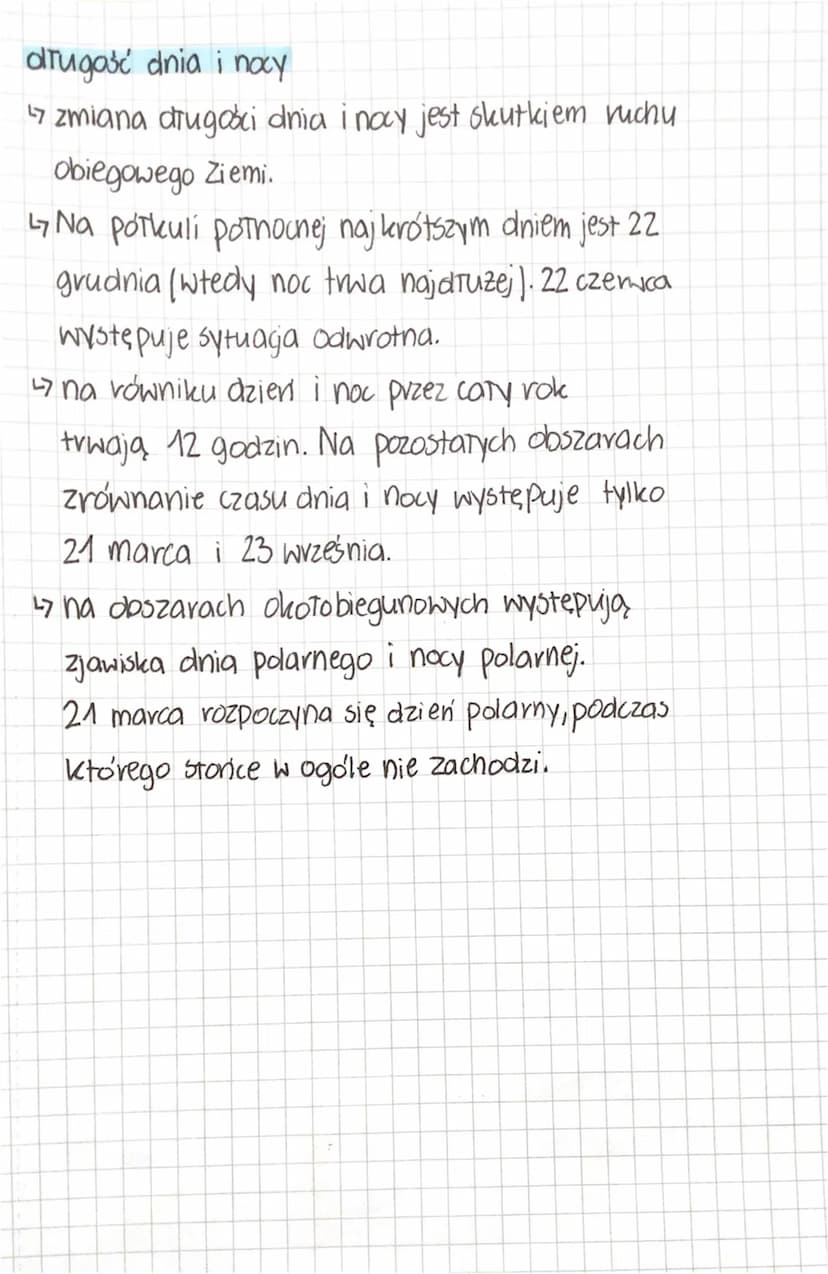 długość dnia i nocy
↳ zmiana długości dnia i nocy jest skutkiem ruchu
obiegowego Ziemi.
↳ Na półkuli północnej najkrótszym dniem jest 22
grudnia (wtedy noc trwa najdłużej). 22 czerwca
występuje sytuacja odwrotna.
↳ na równiku dzień i noc przez cały rok
trwają 12 godzin. Na pozostałych obszarach
zrównanie czasu dnia i nocy występuje tylko
21 marca i 23 września.
↳ na obszarach okołobiegunowych występują
zjawiska dnia polarnego i nocy polarnej.
21 marca rozpoczyna się dzień polarny, podczas
którego słońce w ogóle nie zachodzi.